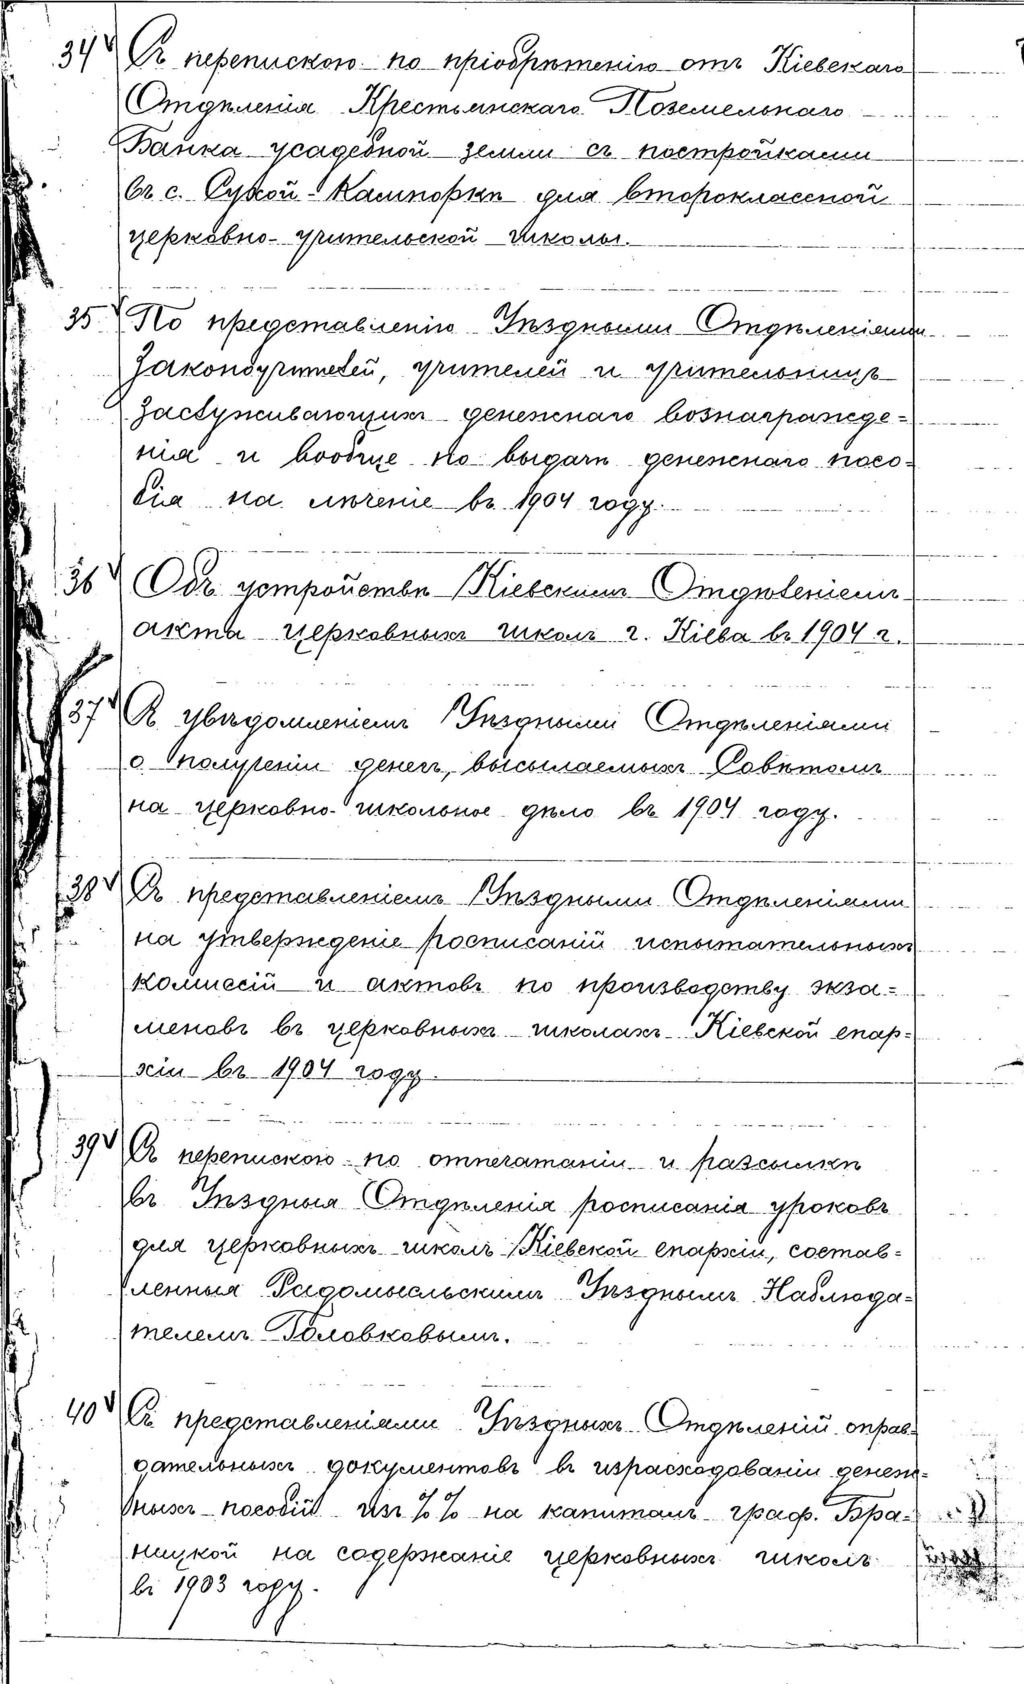 34 Съ перепискою по пріобрѣтенію отъ Кіевскаго
Отдѣленія Крестьянскаго Поземельнаго
Банка усадебной земли съ постройками
въ с. Сухой-Калигоркѣ для второклассной
церковно-учительской школы.
35 По представленію Уѣздными Отдѣленіями
Законоучителей, учителей и учительницъ
заслуживающихъ денежнаго вознагражде=
нія и вообще по выдачѣ денежнаго посо=
бія на лѣченіе въ 1904 году.
36 Объ устройствѣ Кіевскимъ Отдѣленіемъ
акта церковныхъ школъ г. Кіева въ 1904 г.
37 Съ увѣдомленіемъ Уѣздными Отдѣленіями
о полученіи денегъ, высылаемыхъ Совѣтомъ
на церковно-школьное дѣло въ 1904 году.
38 Съ представленіемъ Уѣздными Отдѣленіями
на утвержденіе росписаній испытательныхъ
комиссій и актовъ по производству экза=
меновъ въ церковныхъ школахъ Кіевской епар=
хіи въ 1904 году.
39 Съ перепискою по отпечатаніи и разсылкѣ
въ Уѣздныя Отдѣленія росписанія уроковъ
для церковныхъ школъ Кіевской епархіи, состав=
ленныя Радомысльскимъ Уѣзднымъ Наблюда=
телемъ Головковымъ.
40 Съ представленіями Уѣздныхъ Отдѣленій оправ=
дательныхъ документовъ въ израсходованіи денеж=
ныхъ пособій изъ %% на капиталъ граф. Бра=
ницкой на содержаніе церковныхъ школъ
въ 1903 году.